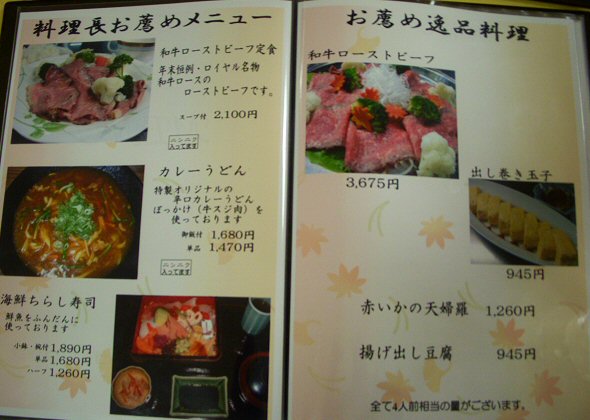 料理長お薦めメニュー
和牛ローストビーフ定食
年末恒例・ロイヤル名物
和牛ロースの
ローストビーフです。
スープ付 2,100円
ニンニク
入ってます
カレーうどん
特製オリジナルの
辛口カレーうどん
ぼっかけ(牛スジ肉)を
使っております
御飯付 1,680円
単品 1,470円
ニンニク
入ってます
海鮮ちらし寿司
鮮魚をふんだんに
使っております
小鉢・椀付 1,890円
単品 1,680円
ハーフ 1,260円
お薦め逸品料理
和牛ローストビーフ
3,675円
出し巻き玉子
945円
赤いかの天婦羅 1,260円
揚げ出し豆腐 945円
全て4人前相当の量がございます。